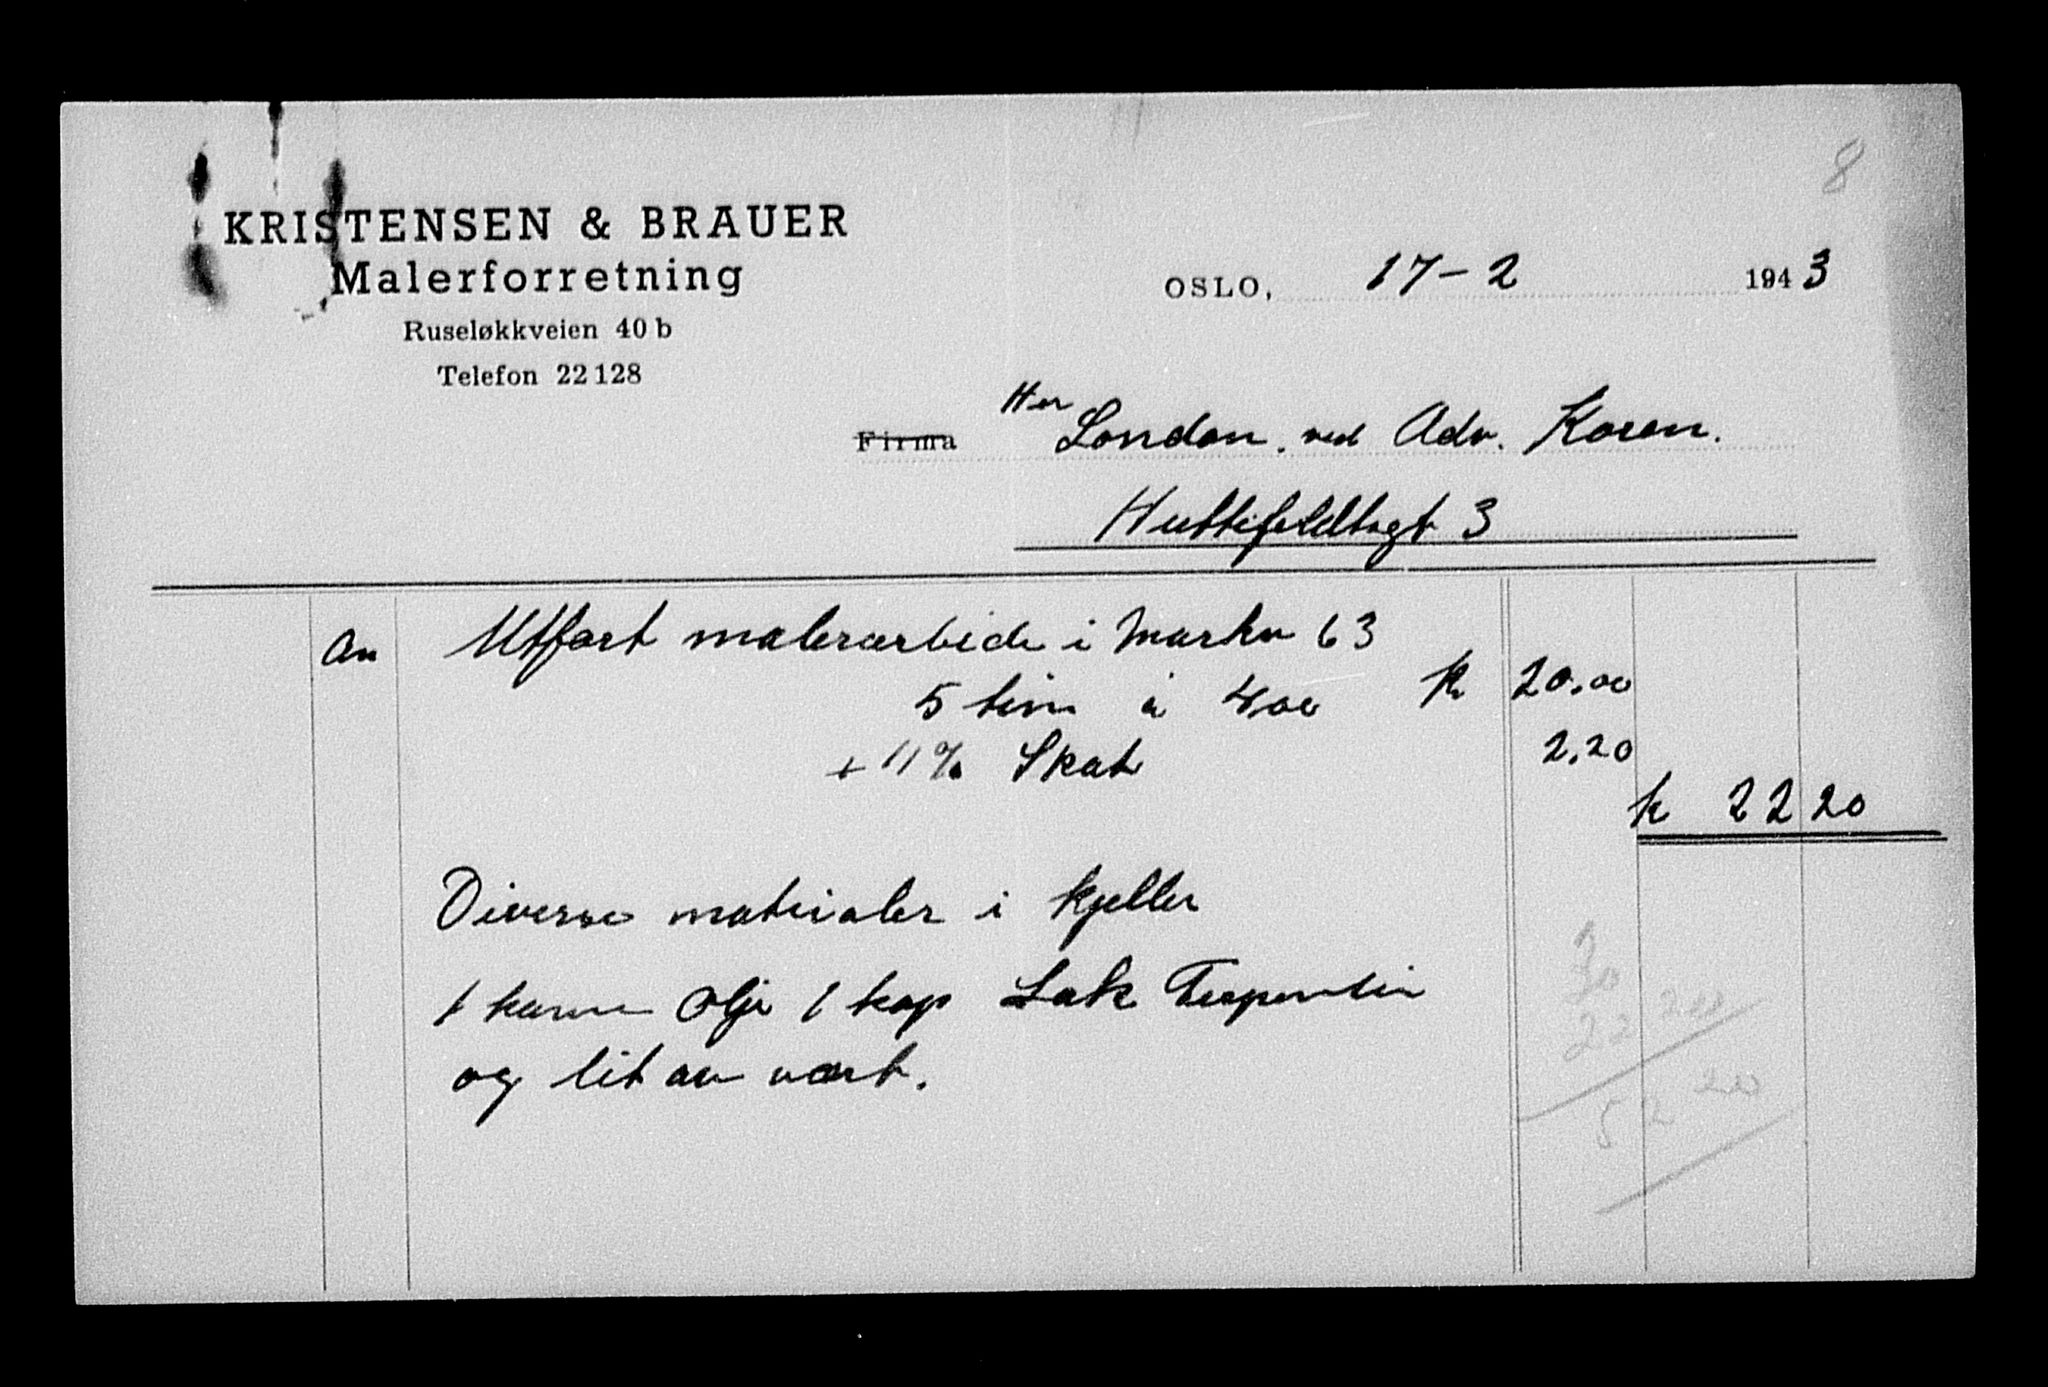 8
KRISTENSEN & BRAUER
Malerforretning
Ruseløkkveien 40 b
Telefon 22128
OSLO, 17-2 1943
Her
Firma London. ved Adv. Koren.
Huitfeldtsgt 3
An Utført malerarbeide i Markv 63
5 tim à 4,00 kr 20.00
+ 11% Skat 2.20
kr 22 20
Diverse materialer i kjeller
1 kanne olje 1 kop Lak Terpentin
og lit av vært.
30
22 20
52 20